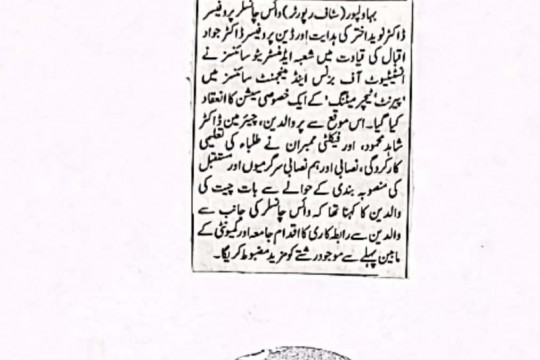 بہاولپور (سٹاف رپورٹر) وائس چانسلر پروفیسر
ڈاکٹر نوید اختر کی ہدایت اور ڈین پروفیسر ڈاکٹر جواد
اقبال کی قیادت میں شعبہ ایڈمنسٹریٹو سائنسز نے
انسٹیٹیوٹ آف بزنس اینڈ مینجمنٹ سائنسز میں
'پیرنٹ ٹیچر میٹنگ' کے ایک خصوصی سیشن کا انعقاد
کیا گیا۔ اس موقع سے پر والدین، چیئرمین ڈاکٹر
شاہد محمود، اور فیکلٹی ممبران نے طلباء کی تعلیمی
کارکردگی، نصابی اور ہم نصابی سرگرمیوں اور مستقبل
کی منصوبہ بندی کے حوالے سے بات چیت کی
والدین کا کہنا تھا کہ وائس چانسلر کی جانب سے
والدین سے رابطہ کاری کا اقدام جامعہ اور کمیونٹی کے
مابین پہلے سے موجود رشتے کو مزید مضبوط کریگا۔